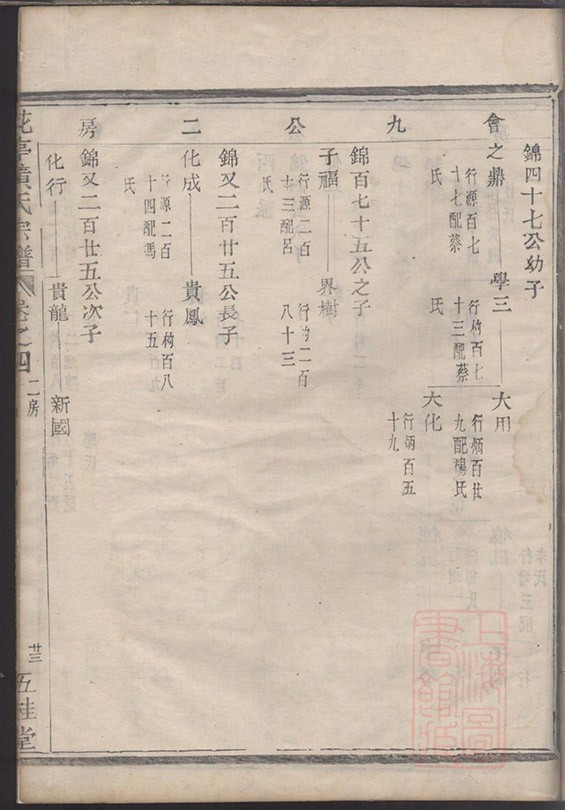 錦四十七公幼子
會九公二房
之鼎
行源百七
十七配蔡
氏
學三
行杓百七
十三配蔡
氏
大用
行炳百廿
九配楊氏
大化
行炳百五
十九
錦百七十五公之子
子福
行源二百
十三配呂
氏
界樹
行杓二百
八十三
錦又二百廿五公長子
化成
行源二百
十四配馮
氏
貴鳳
行杓百八
十五
錦又二百廿五公次子
化行
貴龍
新國
花亭黃氏宗譜
卷之四
二房
廿三
五桂堂
上海圖書館藏